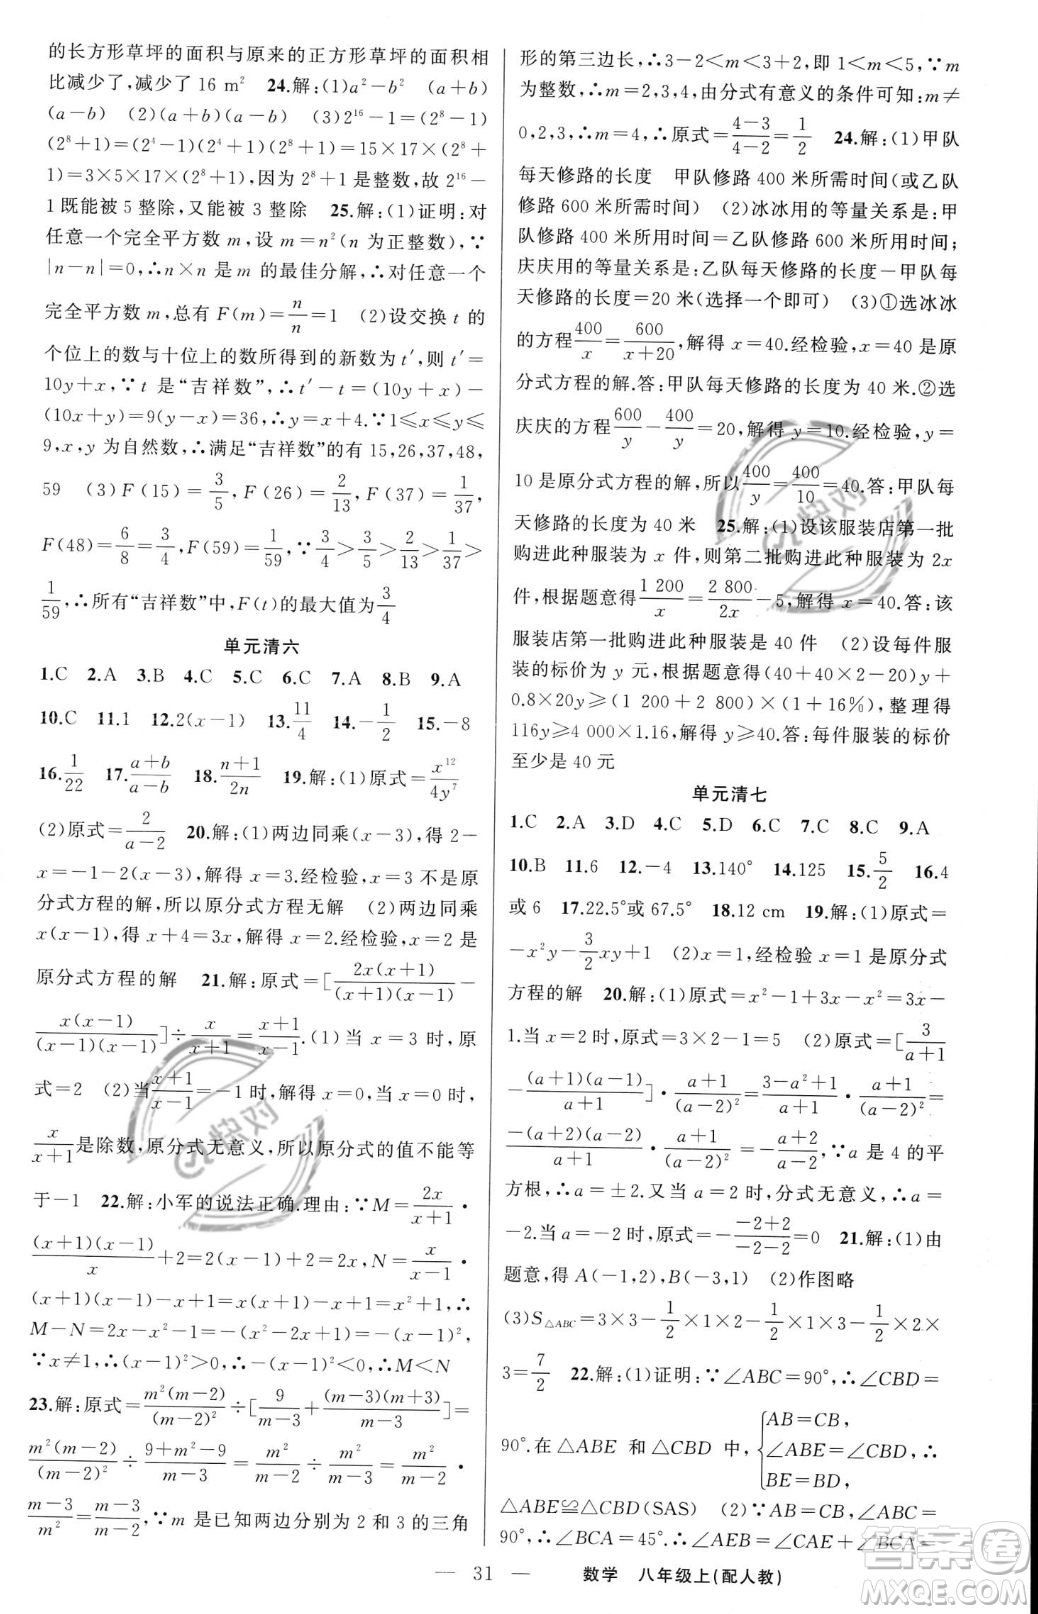 的长方形草坪的面积与原来的正方形草坪的面积相
比减少了,减少了 16 m² 24.解:(1)a²-b² (a+b)
(a-b) (2)(a+b)(a-b) (3)2¹⁶-1=(2⁸-1)
(2⁸+1)=(2⁴-1)(2⁴+1)(2⁸+1)=15×17×(2⁸+
1)=3×5×17×(2⁸+1).因为 2⁸+1 是整数,故 2¹⁶-
1 既能被 5 整除,又能被 3 整除 25.解:(1)证明:对
任意一个完全平方数 m,设 m=n²(n 为正整数),∵
|n-n|=0,∴n×n 是 m 的最佳分解,∴对任意一个
完全平方数 m,总有 F(m)=n/n=1 (2)设交换 t 的
个位上的数与十位上的数所得到的新数为 t′,则 t′=
10y+x,∵t 是“吉祥数”,∴t′-t=(10y+x)-
(10x+y)=9(y-x)=36,∴y=x+4.∵1≤x≤y≤
9,x,y 为自然数,∴满足“吉祥数”的有 15,26,37,48,
59 (3)F(15)=3/5,F(26)=2/13,F(37)=1/37,
F(48)=6/8=3/4,F(59)=1/59,∵3/4>3/5>2/13>1/37>
1/59,∴所有“吉祥数”中,F(t)的最大值为3/4
单元清六
1.C 2.A 3.B 4.C 5.B 6.C 7.A 8.B 9.A
10.C 11.1 12.2(x-1) 13.11/4 14.-1/2 15.-8
16.1/22 17.(a+b)/(a-b) 18.(n+1)/2n 19.解:(1)原式=x¹²/4y⁷
(2)原式=2/(a-2) 20.解:(1)两边同乘(x-3),得 2-
x=-1-2(x-3),解得 x=3.经检验,x=3 不是原
分式方程的解,所以原分式方程无解 (2)两边同乘
x(x-1),得 x+4=3x,解得 x=2.经检验,x=2 是
原分式方程的解 21.解:原式=[2x(x+1)/(x+1)(x-1)-
x(x-1)/(x-1)(x+1)]÷x/(x+1)=(x+1)/(x-1).(1)当 x=3 时,原
式=2 (2)当(x+1)/(x-1)=-1 时,解得 x=0,当 x=0 时,
x/(x+1)是除数,原分式无意义,所以原分式的值不能等
于-1 22.解:小军的说法正确.理由:∵M=2x/(x+1)·
(x+1)(x-1)/x+2=2(x-1)+2=2x,N=x/(x-1)·
(x+1)(x-1)-x+1=x(x+1)-x+1=x²+1,∴
M-N=2x-x²-1=-(x²-2x+1)=-(x-1)²,
∵x≠1,∴(x-1)²>0,∴-(x-1)²<0,∴M<N
23.解:原式=m²(m-2)/(m-2)²÷[9/(m-3)+(m-3)(m+3)/(m-3)]=
m²(m-2)/(m-2)²÷(9+m²-9)/(m-3)=m²/(m-2)÷m²/(m-3)=m²/(m-2)·
(m-3)/m²=(m-3)/(m-2),∵m 是已知两边分别为 2 和 3 的三角
形的第三边长,∴3-2<m<3+2,即 1<m<5,∵m
为整数,∴m=2,3,4,由分式有意义的条件可知:m≠
0,2,3,∴m=4,∴原式=(4-3)/(4-2)=1/2 24.解:(1)甲队
每天修路的长度 甲队修路 400 米所需时间(或乙队
修路 600 米所需时间) (2)冰冰用的等量关系是:甲
队修路 400 米所用时间=乙队修路 600 米所用时间;
庆庆用的等量关系是:乙队每天修路的长度-甲队每
天修路的长度=20 米(选择一个即可) (3)①选冰冰
的方程400/x=600/(x+20),解得 x=40.经检验,x=40 是原
分式方程的解.答:甲队每天修路的长度为 40 米.②选
庆庆的方程600/y-400/y=20,解得 y=10.经检验,y=
10 是原分式方程的解,所以400/y=400/10=40.答:甲队每
天修路的长度为 40 米 25.解:(1)设该服装店第一批
购进此种服装为 x 件,则第二批购进此种服装为 2x
件,根据题意得1 200/x=2 800/2x-5,解得 x=40.答:该
服装店第一批购进此种服装是 40 件 (2)设每件服
装的标价为 y 元,根据题意得(40+40×2-20)y+
0.8×20y≥(1 200+2 800)×(1+16%),整理得
116y≥4 000×1.16,解得 y≥40.答:每件服装的标价
至少是 40 元
单元清七
1.C 2.A 3.D 4.C 5.D 6.C 7.C 8.C 9.A
10.B 11.6 12.-4 13.140° 14.125 15.5/2 16.4
或 6 17.22.5°或 67.5° 18.12 cm 19.解:(1)原式=
-x²y-3/2xy+1 (2)x=1,经检验 x=1 是原分式
方程的解 20.解:(1)原式=x²-1+3x-x²=3x-
1.当 x=2 时,原式=3×2-1=5 (2)原式=[3/(a+1)
-(a+1)(a-1)/(a+1)]·(a+1)/(a-2)²=(3-a²+1)/(a+1)·(a+1)/(a-2)²=
-(a+2)(a-2)/(a+1)·(a+1)/(a-2)²=-(a+2)/(a-2),∵a 是 4 的平
方根,∴a=±2.当 a=2 时,分式无意义,∴a=
-2.当 a=-2 时,原式=-(-2+2)/(-2-2)=0 21.解:(1)由
题意,得 A(-1,2),B(-3,1) (2)作图略
(3)S△ABC=3×3-1/2×1×2-1/2×1×3-1/2×2×
3=7/2 22.解:(1)证明:∵∠ABC=90°,∴∠CBD=
90°.在△ABE 和△CBD 中,{AB=CB,∠ABE=∠CBD,BE=BD,∴
△ABE≌△CBD(SAS) (2)∵AB=CB,∠ABC=
90°,∴∠BCA=45°.∴∠AEB=∠CAE+∠BCA=
31 数学 八年级上(配人教)
快对
快对
答案圈